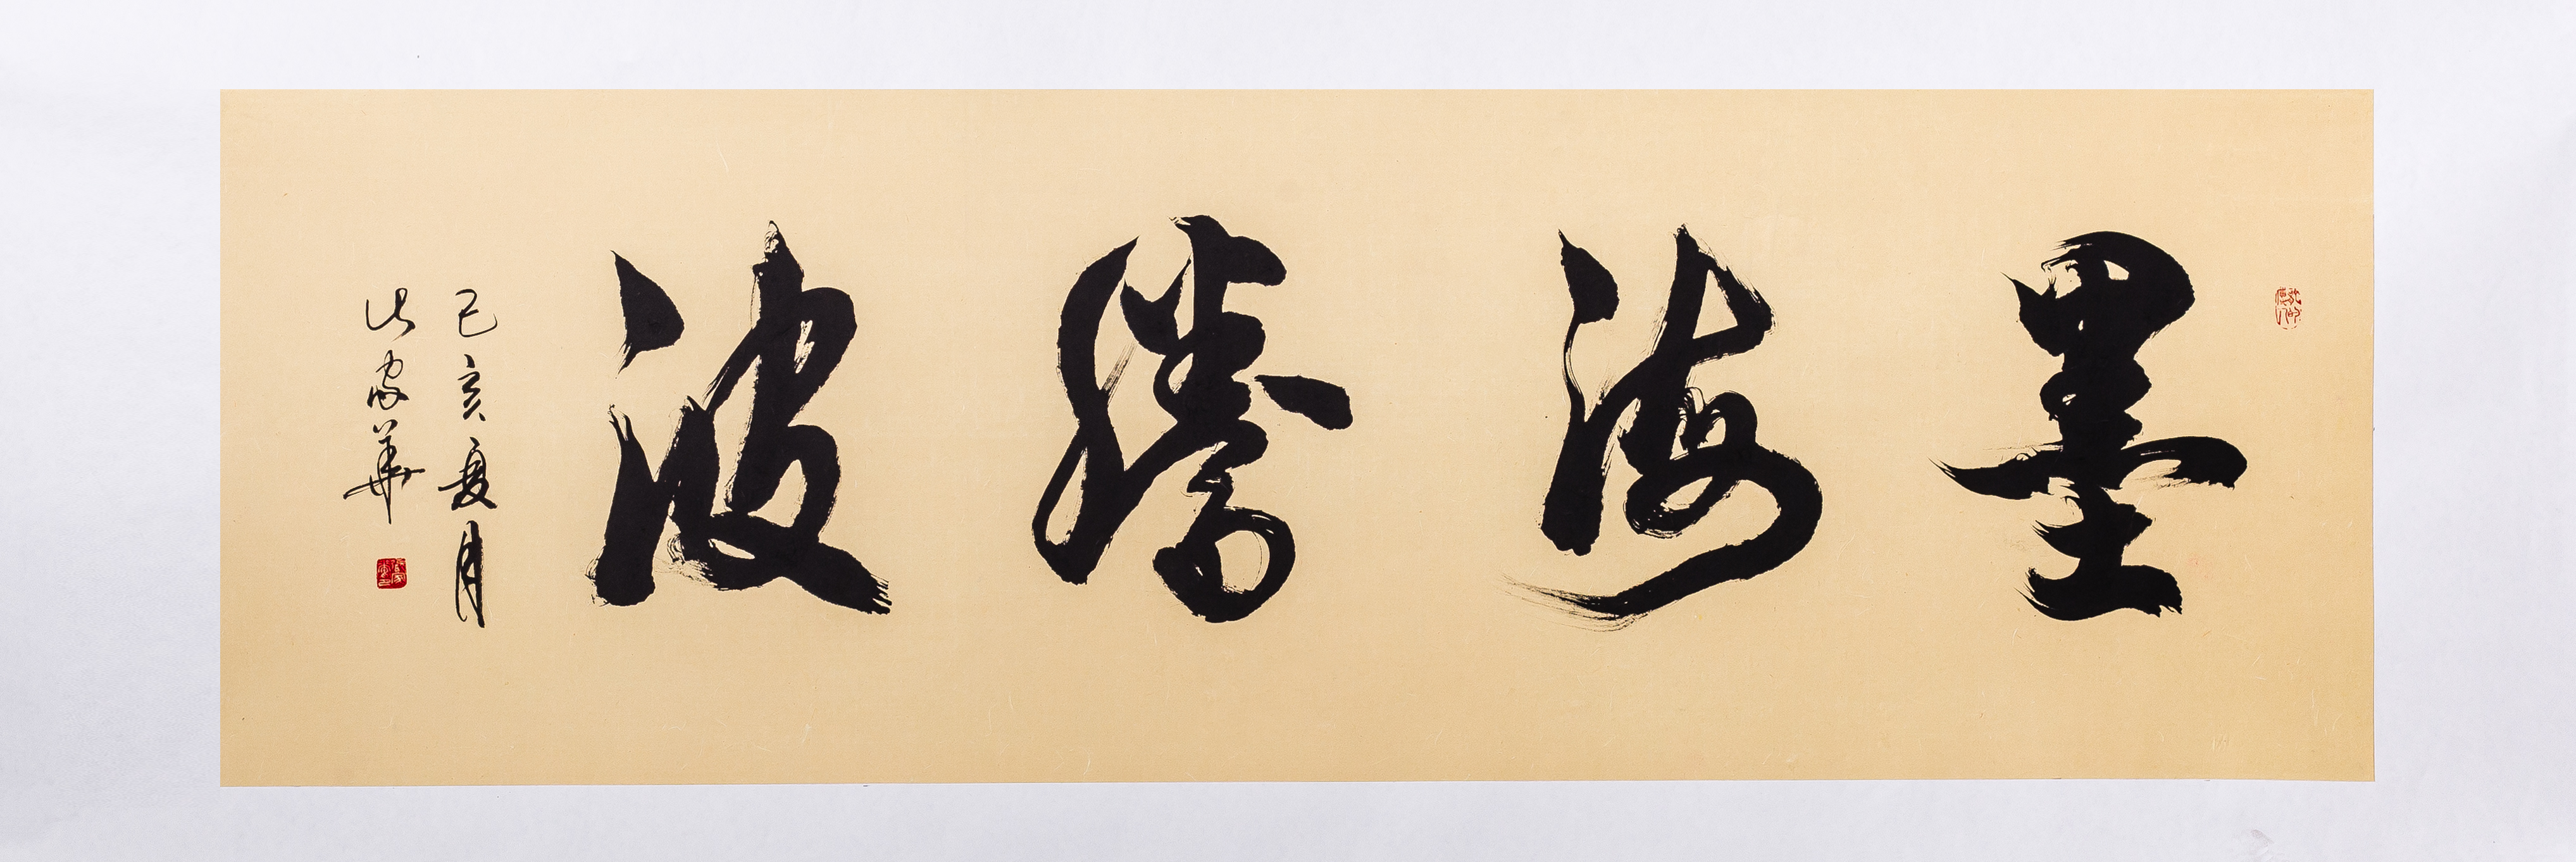 墨海騰波
己亥夏月
家華